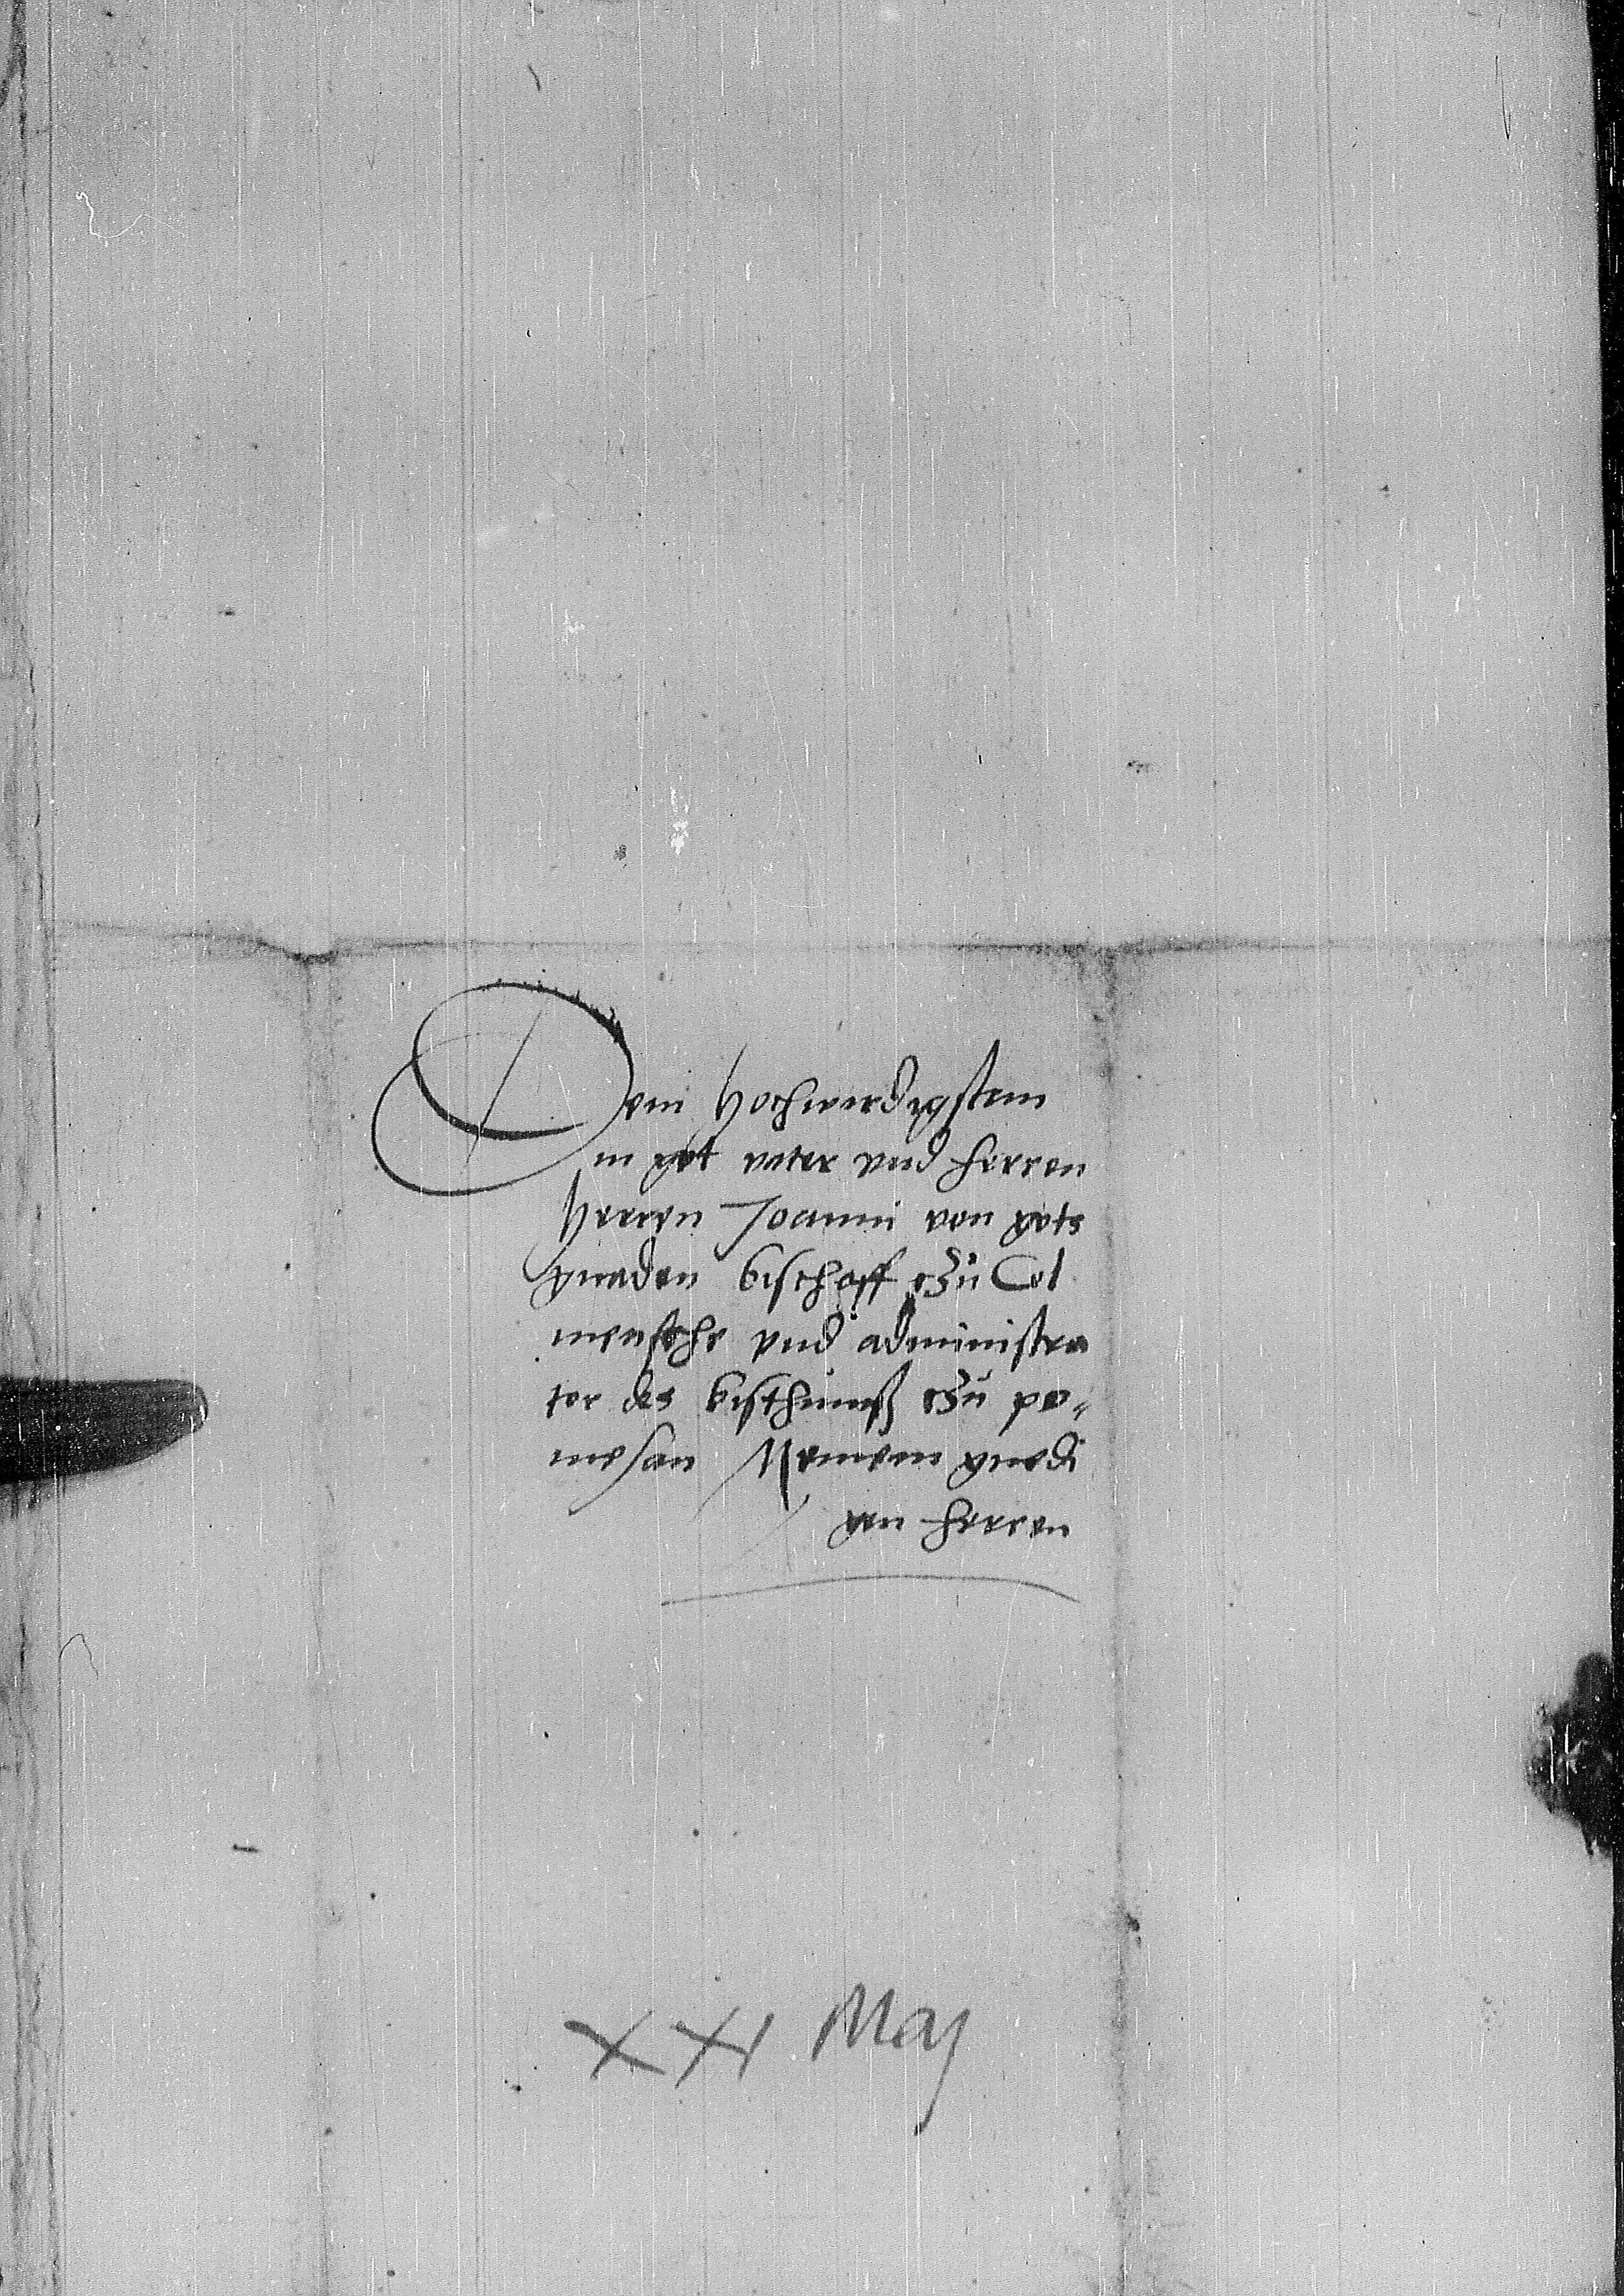 Dem hochwirdigstem
in got vater vnd herren
Herren Joanni von gots
gnaden bischoff czu Col
mensehe vnd administra
tor des bisthumß czu po„
mesan Meinem gnedi
gen herren
XXI Maj